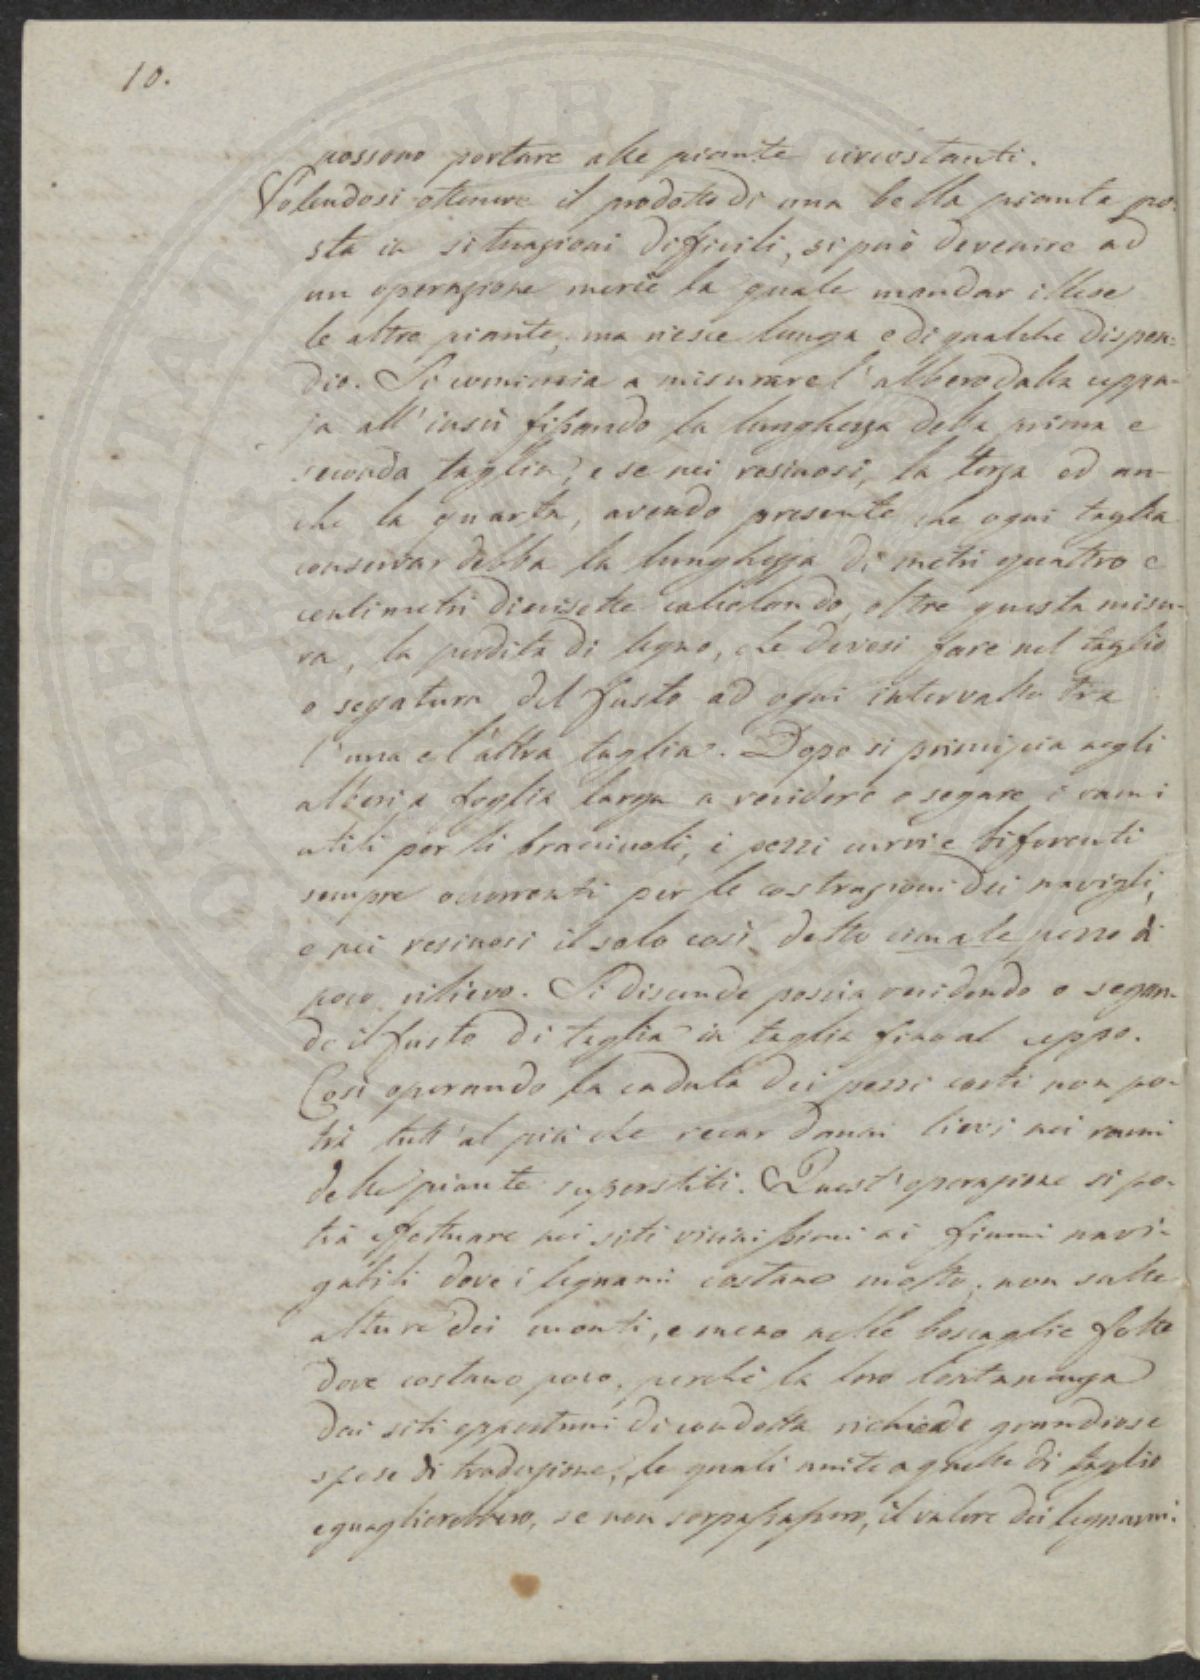 10.
possono portare alle piante circostanti.
Volendosi ottenere il prodotto di una bella pianta po-
sta in situazioni difficili, si può devenire ad
un operazione mercè la quale mandar illese
le altre piante, ma riesce lunga e di qualche dispen-
dio. Si comincia a misurare l'albero dalla ceppa-
ja all'insù fissando la lunghezza della prima e
seconda taglia, e se nei resinosi, la terza ed an-
che la quarta, avendo presente che ogni taglia
conservar debba la lunghezza di metri quattro e
centimetri diecisette calcolando, oltre questa misu-
ra, la perdita di legno, che devesi fare nel taglio
o segatura del fusto ad ogni intervallo tra
l'una e l'altra taglia. Dopo si principia negli
alberi a foglia larga a recidere o segare i rami
utili per li bracciuoli, i pezzi curvi e biforenti
sempre occorrenti per le costruzioni dei navigli,
e nei resinosi il solo così detto cimale pezzo di
poco rilievo. Si discende poscia recidendo o segan-
do il fusto di taglia in taglia fino al ceppo.
Così operando la caduta dei pezzi corti non po-
trà tutt'al più che recar danni lievi nei rami
delle piante superstiti. Quest'operazione si po-
trà effettuare nei siti vicinissimi ai fiumi navi-
gabili dove i legnami costano molto, non sulle
alture dei monti, e meno nelle boscaglie folte
dove costano poco, perchè la loro lontananza
dai siti opportuni di condotta richiede grandiose
spese di traduzione, le quali unite a quelle di taglio
eguaglierebbero, se non sorpassassero, il valore dei legnami.
PVBLIC